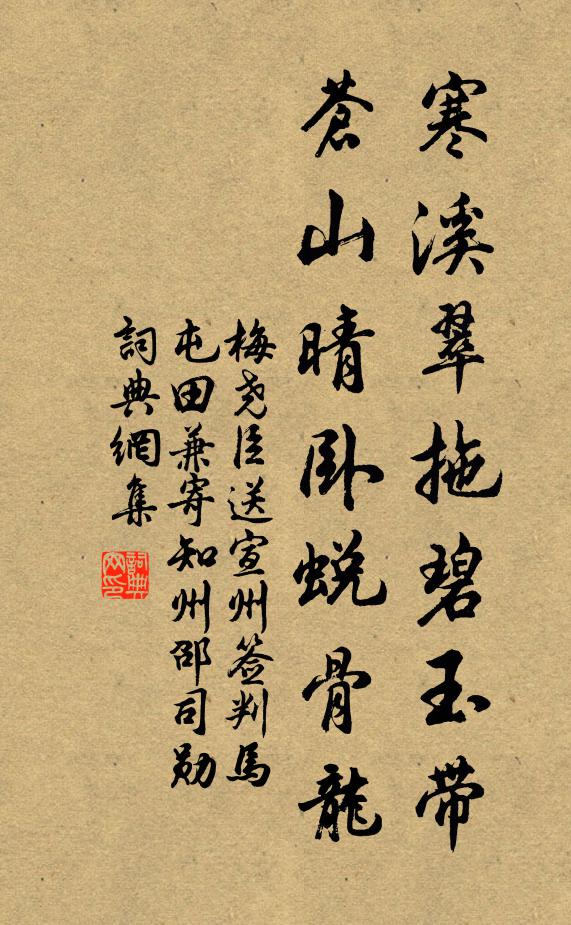 寒溪翠拖碧玉带
蒼山晴卧蜕骨龍
梅尧臣送宣州签判馬
屯田兼寄知州邵司勋
詞典網集
詞典
网印